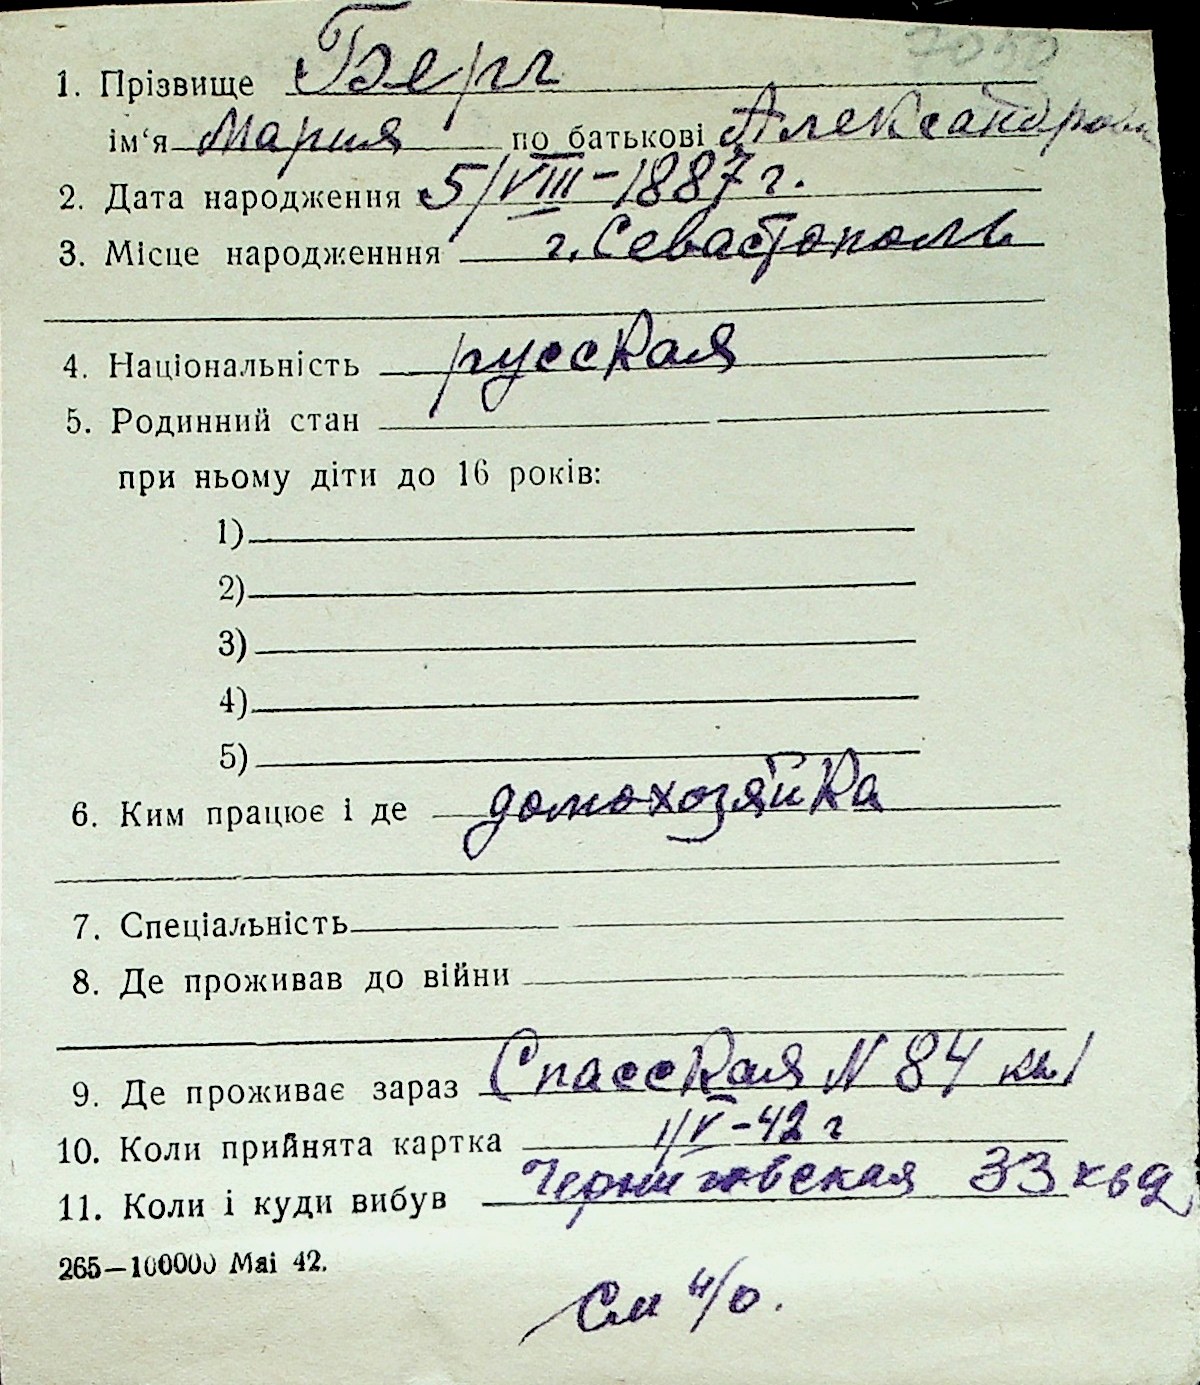 1. Прізвище Берг
ім‘я Мария по батькові Александровна
2. Дата народження 5/VIII-1887 г.
3. Місце народженння г. Севастополь
4. Національність русская
5. Родинний стан
при ньому діти до 16 років:
1)
2)
3)
4)
5)
6. Ким працює і де домохозяйка
7. Спеціальність
8. Де проживав до війни
9. Де проживає зараз Спасская N 84 кв. 1
10. Коли прийнята картка 1/V-42 г
11. Коли і куди вибув Черниговская 33 кв 9
265—100000 Mai 42.
См н/о.